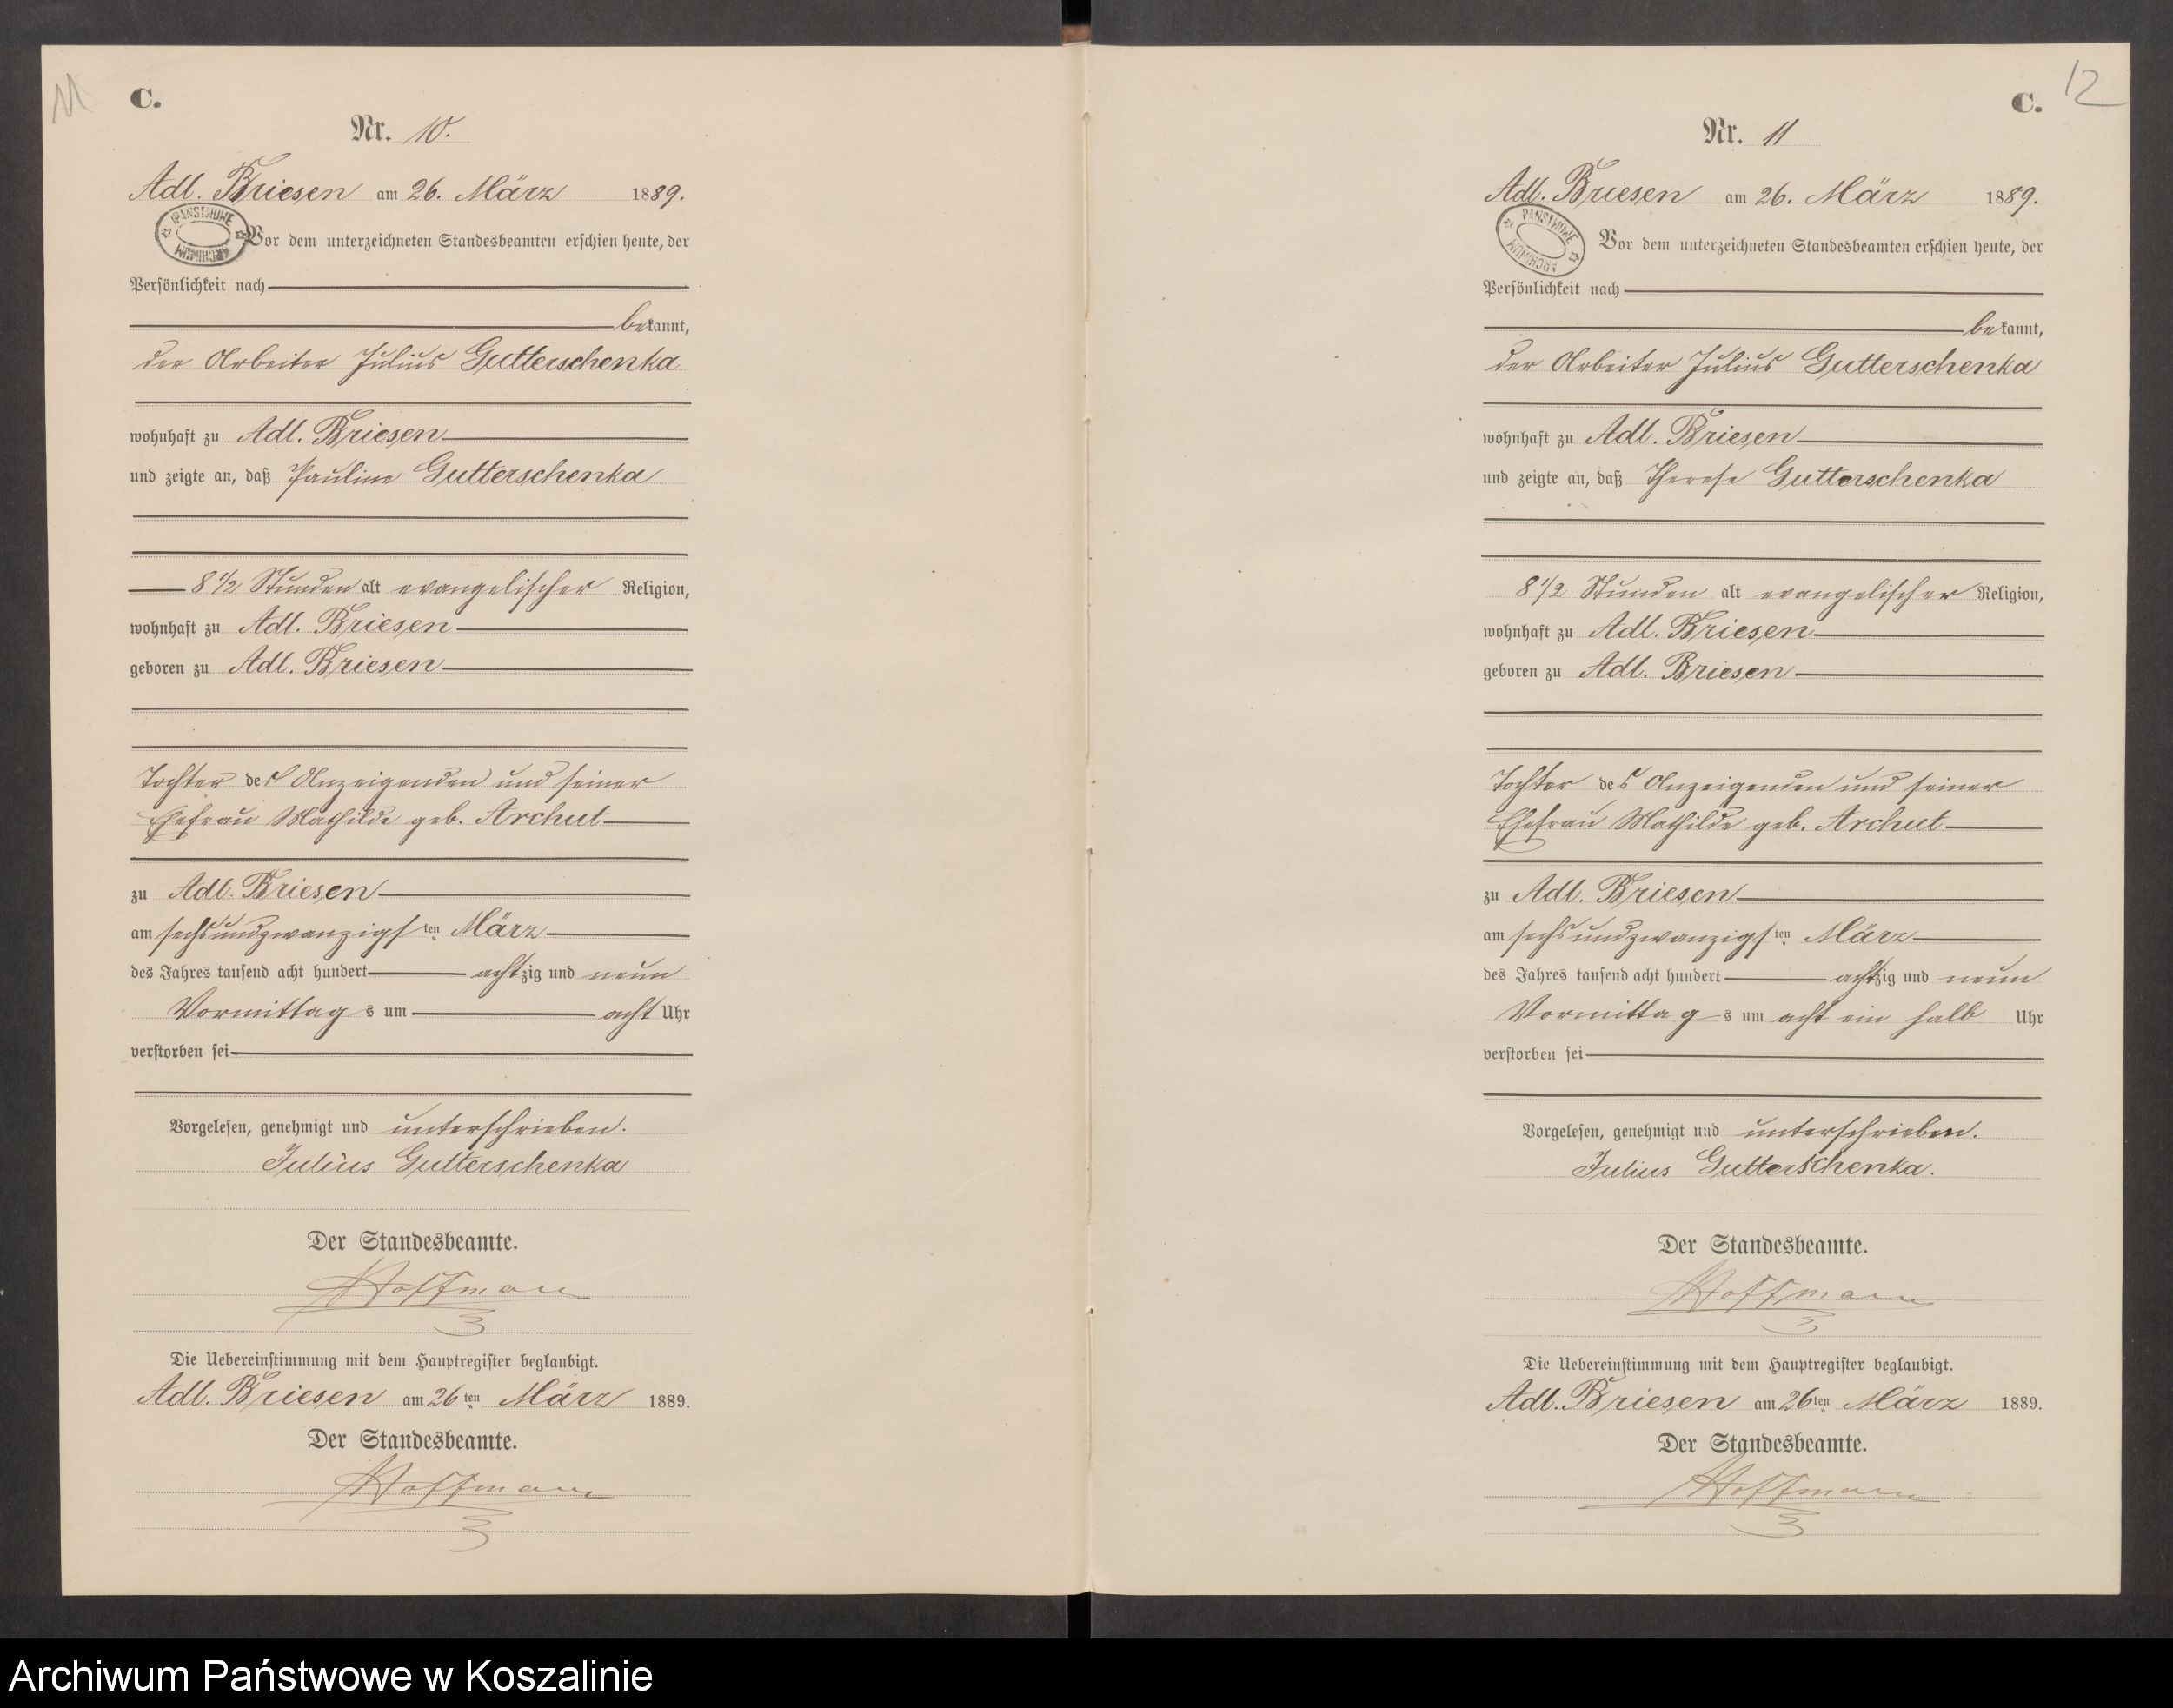 C.
Nr. 10.
Adl. Briesen am 26. März 1889.
PANSTWOWE ARCHIWUM
Vor dem unterzeichneten Standesbeamten erschien heute, der
Persönlichkeit nach
bekannt,
der Arbeiter Julius Gutterschenka
wohnhaft zu Adl. Briesen
und zeigte an, daß Pauline Gutterschenka
8 1/2 Stunden alt evangelischer Religion,
wohnhaft zu Adl. Briesen
geboren zu Adl. Briesen
Tochter des Anzeigenden und seiner
Ehefrau Mathilde geb. Archut
zu Adl. Briesen
am sechsundzwanzigsten März
des Jahres tausend acht hundert achtzig und neun
Vormittags um acht Uhr
verstorben sei
Vorgelesen, genehmigt und unterschrieben.
Julius Gutterschenka
Der Standesbeamte.
Hoffmann
Die Uebereinstimmung mit dem Hauptregister beglaubigt.
Adl. Briesen am 26ten März 1889.
Der Standesbeamte.
Hoffmann
C.
12
Nr. 11
Adl. Briesen am 26. März 1889.
PANSTWOWE ARCHIWUM
Vor dem unterzeichneten Standesbeamten erschien heute, der
Persönlichkeit nach
bekannt,
der Arbeiter Julius Gutterschenka
wohnhaft zu Adl. Briesen
und zeigte an, daß Therese Gutterschenka
8 1/2 Stunden alt evangelischer Religion,
wohnhaft zu Adl. Briesen
geboren zu Adl. Briesen
Tochter des Anzeigenden und seiner
Ehefrau Mathilde geb. Archut
zu Adl. Briesen
am sechsundzwanzigsten März
des Jahres tausend acht hundert achtzig und neun
Vormittags um acht ein halb Uhr
verstorben sei
Vorgelesen, genehmigt und unterschrieben.
Julius Gutterschenka.
Der Standesbeamte.
Hoffmann
Die Uebereinstimmung mit dem Hauptregister beglaubigt.
Adl. Briesen am 26ten März 1889.
Der Standesbeamte.
Hoffmann
Archiwum Państwowe w Koszalinie